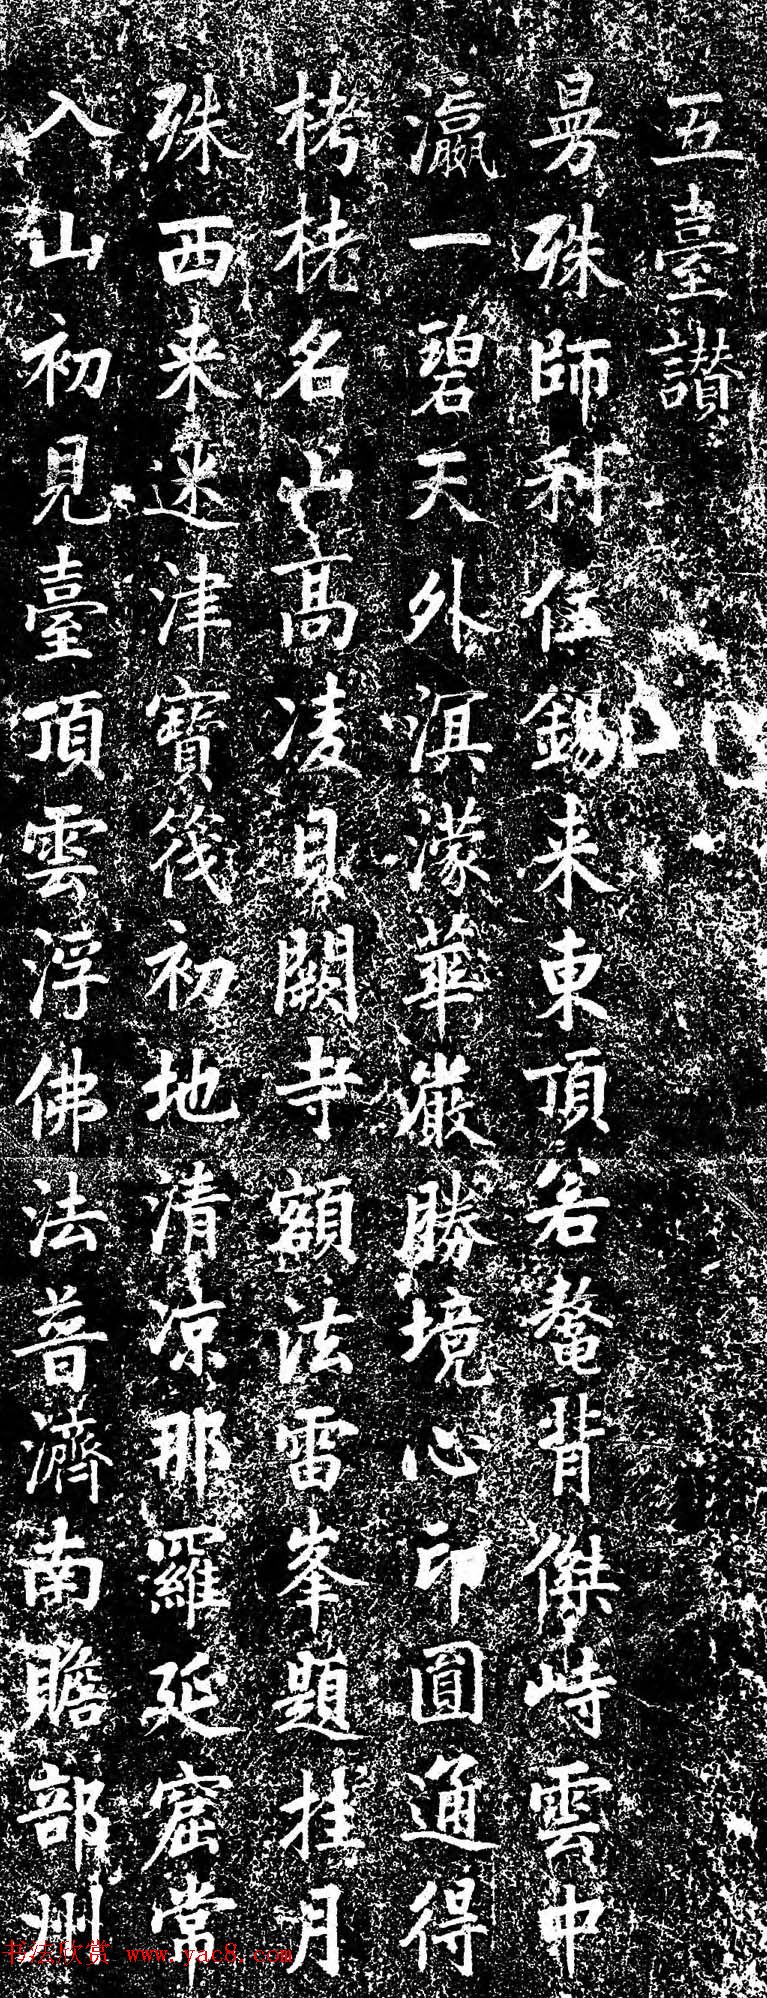 五臺讃
曼殊師利住錫来東頂若鼇背傑峙雲中
瀛一碧天外溟濛華巖勝境心印圓通得
栲栳名山高凌見闕寺額法雷峯題挂月
殊西来迷津寶筏初地清凉那羅延窟常
入山初見臺頂雲浮佛法普濟南贍部州
书法欣赏 www.yac8.com